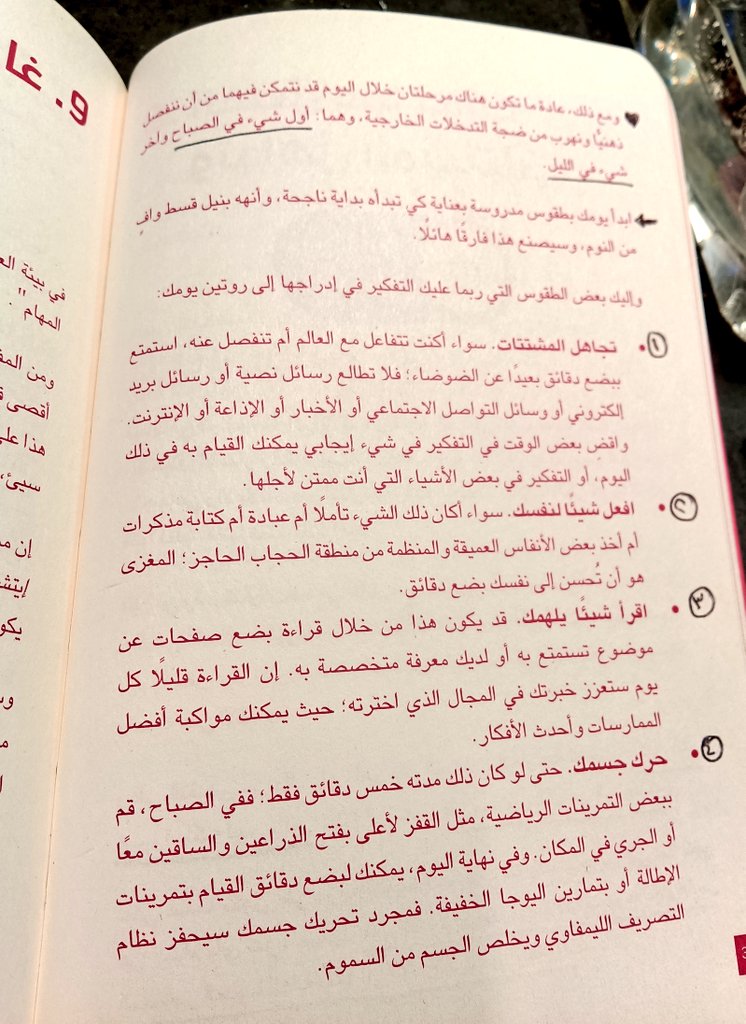 ومع ذلك، عادة ما تكون هناك مرحلتان خلال اليوم قد نتمكن فيهما من أن ننفصل
ذهنيًّا ونهرب من ضجة التدخلات الخارجية، وهما: أول شيء في الصباح وآخر
شيء في الليل.
ابدأ يومك بطقوس مدروسة بعناية كي تبدأه بداية ناجحة، وأنهه بنيل قسط وافٍ
من النوم، وسيصنع هذا فارقًا هائلًا.
وإليك بعض الطقوس التي ربما عليك التفكير في إدراجها إلى روتين يومك:
١ • تجاهل المشتتات. سواء أكنت تتفاعل مع العالم أم تنفصل عنه، استمتع
ببضع دقائق بعيدًا عن الضوضاء؛ فلا تطالع رسائل نصية أو رسائل بريد
إلكتروني أو وسائل التواصل الاجتماعي أو الأخبار أو الإذاعة أو الإنترنت.
واقضِ بعض الوقت في التفكير في شيء إيجابي يمكنك القيام به في ذلك
اليوم، أو التفكير في بعض الأشياء التي أنت ممتن لأجلها.
٢ • افعل شيئًا لنفسك. سواء أكان ذلك الشيء تأملًا أم عبادة أم كتابة مذكرات
أم أخذ بعض الأنفاس العميقة والمنظمة من منطقة الحجاب الحاجز؛ المغزى
هو أن تُحسن إلى نفسك بضع دقائق.
٣ • اقرأ شيئًا يلهمك. قد يكون هذا من خلال قراءة بضع صفحات عن
موضوع تستمتع به أو لديك معرفة متخصصة به. إن القراءة قليلًا كل
يوم ستعزز خبرتك في المجال الذي اخترته؛ حيث يمكنك مواكبة أفضل
الممارسات وأحدث الأفكار.
٤ • حرك جسمك. حتى لو كان ذلك مدته خمس دقائق فقط؛ ففي الصباح، قم
ببعض التمرينات الرياضية، مثل القفز لأعلى بفتح الذراعين والساقين معًا
أو الجري في المكان. وفي نهاية اليوم، يمكنك لبضع دقائق القيام بتمرينات
الإطالة أو بتمارين اليوجا الخفيفة. فمجرد تحريك جسمك سيحفز نظام
التصريف الليمفاوي ويخلص الجسم من السموم.
٩. غا
في بيئة
المهام".
ومن
أقصى
هذا
سيئ،
إن